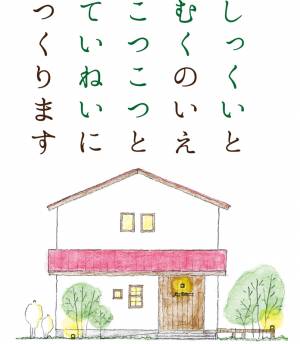 しっくいと
むくのいえ
こつこつと
ていねいに
つくります